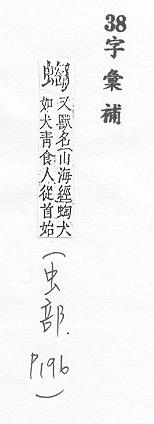 38字彙補
蜪
又獸名(山海經蜪犬
如犬青食人從首始
(虫部.P196)